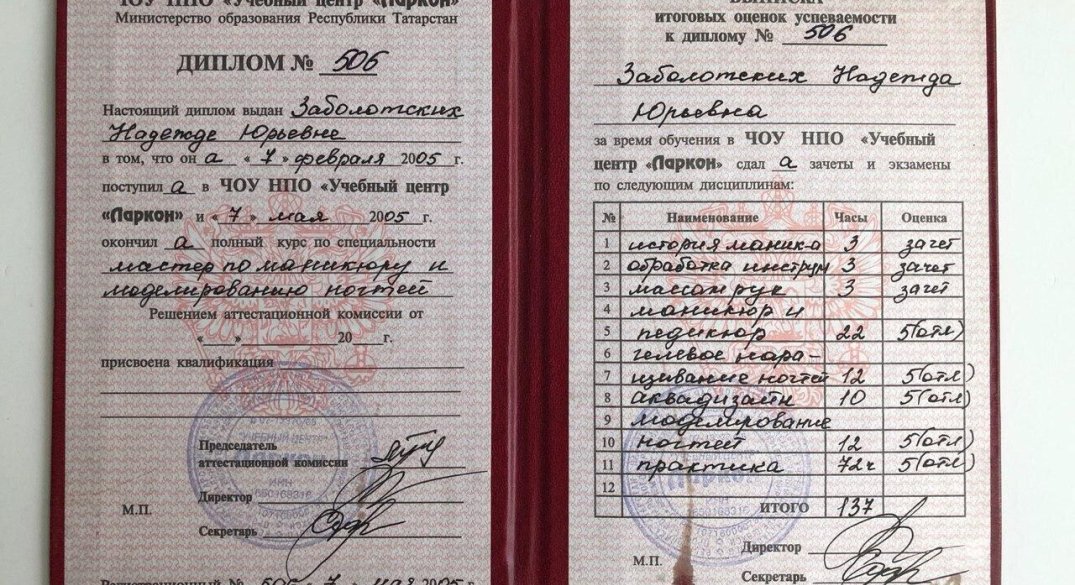 ЧОУ НПО «Учебный центр «Ларкон»
Министерство образования Республики Татарстан
ДИПЛОМ № 506
Настоящий диплом выдан Заболотских
Надежде Юрьевне
в том, что он а « 7 » февраля 2005 г.
поступил а в ЧОУ НПО «Учебный центр
«Ларкон» и « 7 » мая 2005 г.
окончил а полный курс по специальности
мастер по маникюру и
моделированию ногтей
Решением аттестационной комиссии от
« » 20 г.
присвоена квалификация
Председатель
аттестационной комиссии
Директор
М.П.
Секретарь
Регистрационный № 506 « 7 » мая 2005 г.
ВЫПИСКА
итоговых оценок успеваемости
к диплому № 506
Заболотских Надежда
Юрьевна
за время обучения в ЧОУ НПО «Учебный
центр «Ларкон» сдал а зачеты и экзамены
по следующим дисциплинам:
№ Наименование Часы Оценка
1 история маника 3 зачет
2 обработка инструм 3 зачет
3 массаж рук 3 зачет
4 маникюр и
5 педикюр 22 5(отл)
6 гелевое нара-
7 щивание ногтей 12 5(отл)
8 аквадизайн 10 5(отл)
9 моделирование
10 ногтей 12 5(отл)
11 практика 72ч 5(отл)
12
ИТОГО 137
Директор
М.П.
Секретарь